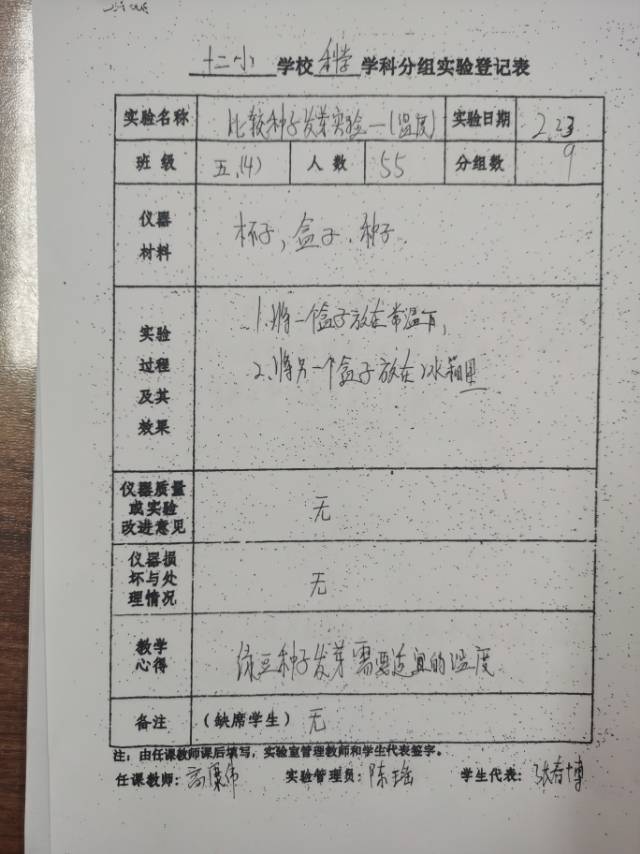 十二小 学校 科学 学科分组实验登记表
实验名称 比较种子发芽实验一(温度) 实验日期 2.23
班级 五.(4) 人数 55 分组数 9
仪器材料 杯子,盒子.种子.
实验过程及其效果 1.将一个盒子放在常温下,
2.将另一个盒子放在冰箱里
仪器质量或实验改进意见 无
仪器损坏与处理情况 无
教学心得 绿豆种子发芽需要适宜的温度
备注 (缺席学生) 无
注:由任课教师课后填写,实验室管理教师和学生代表签字。
任课教师: 实验管理员:陈瑶 学生代表: